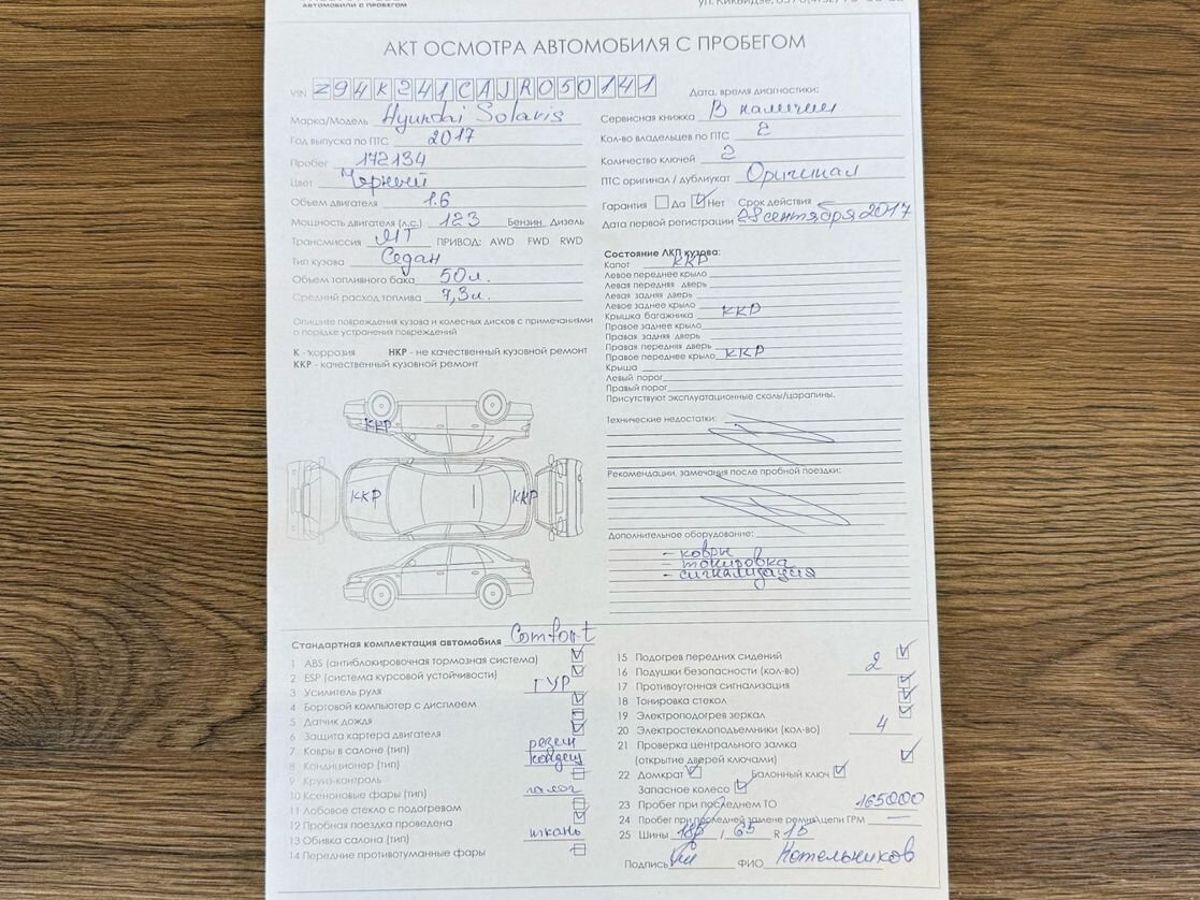 АВТОМОБИЛИ С ПРОБЕГОМ
АКТ ОСМОТРА АВТОМОБИЛЯ С ПРОБЕГОМ
VIN Z94K241CAJR050141
Марка/Модель Hyundai Solaris
Год выпуска по ПТС 2017
Пробег 172134
Цвет Черный
Объем двигателя 1.6
Мощность двигателя (л.с.) 123 Бензин Дизель
Трансмиссия МТ ПРИВОД: AWD FWD RWD
Тип кузова Седан
Объем топливного бака 50л.
Средний расход топлива 7,3л.
Опишите повреждения кузова и колесных дисков с примечаниями
о порядке устранения повреждений
К - коррозия НКР - не качественный кузовной ремонт
ККР - качественный кузовной ремонт
ККР
ККР ККР
Дата, время диагностики:
Сервисная книжка В наличии
Кол-во владельцев по ПТС 2
Количество ключей 2
ПТС оригинал / дубликат Оригинал
Гарантия Да Нет Срок действия
Дата первой регистрации 28 сентября 2017
Состояние ЛКП кузова:
Капот ККР
Левое переднее крыло
Левая передняя дверь
Левая задняя дверь
Левое заднее крыло
Крышка багажника ККР
Правое заднее крыло
Правая задняя дверь
Правая передняя дверь
Правое переднее крыло ККР
Крыша
Левый порог
Правый порог
Присутствуют эксплуатационные сколы/царапины.
Технические недостатки:
Рекомендации, замечания после пробной поездки:
Дополнительное оборудование:
- ковры
- тонировка
- сигнализация
Стандартная комплектация автомобиля Comfort
1 ABS (антиблокировочная тормозная система)
2 ESP (система курсовой устойчивости)
3 Усилитель руля ГУР
4 Бортовой компьютер с дисплеем
5 Датчик дождя
6 Защита картера двигателя
7 Ковры в салоне (тип) резин
8 Кондиционер (тип) кондиц
9 Круиз-контроль
10 Ксеноновые фары (тип) галог
11 Лобовое стекло с подогревом
12 Пробная поездка проведена
13 Обивка салона (тип) ткань
14 Передние противотуманные фары
15 Подогрев передних сидений
16 Подушки безопасности (кол-во) 2
17 Противоугонная сигнализация
18 Тонировка стекол
19 Электроподогрев зеркал
20 Электростеклоподъемники (кол-во) 4
21 Проверка центрального замка
(открытие дверей ключами)
22 Домкрат Балонный ключ
Запасное колесо
23 Пробег при последнем ТО 165000
24 Пробег при последней замене ремня\цепи ГРМ —
25 Шины 185 / 65 R 15
Подпись ФИО Котельников